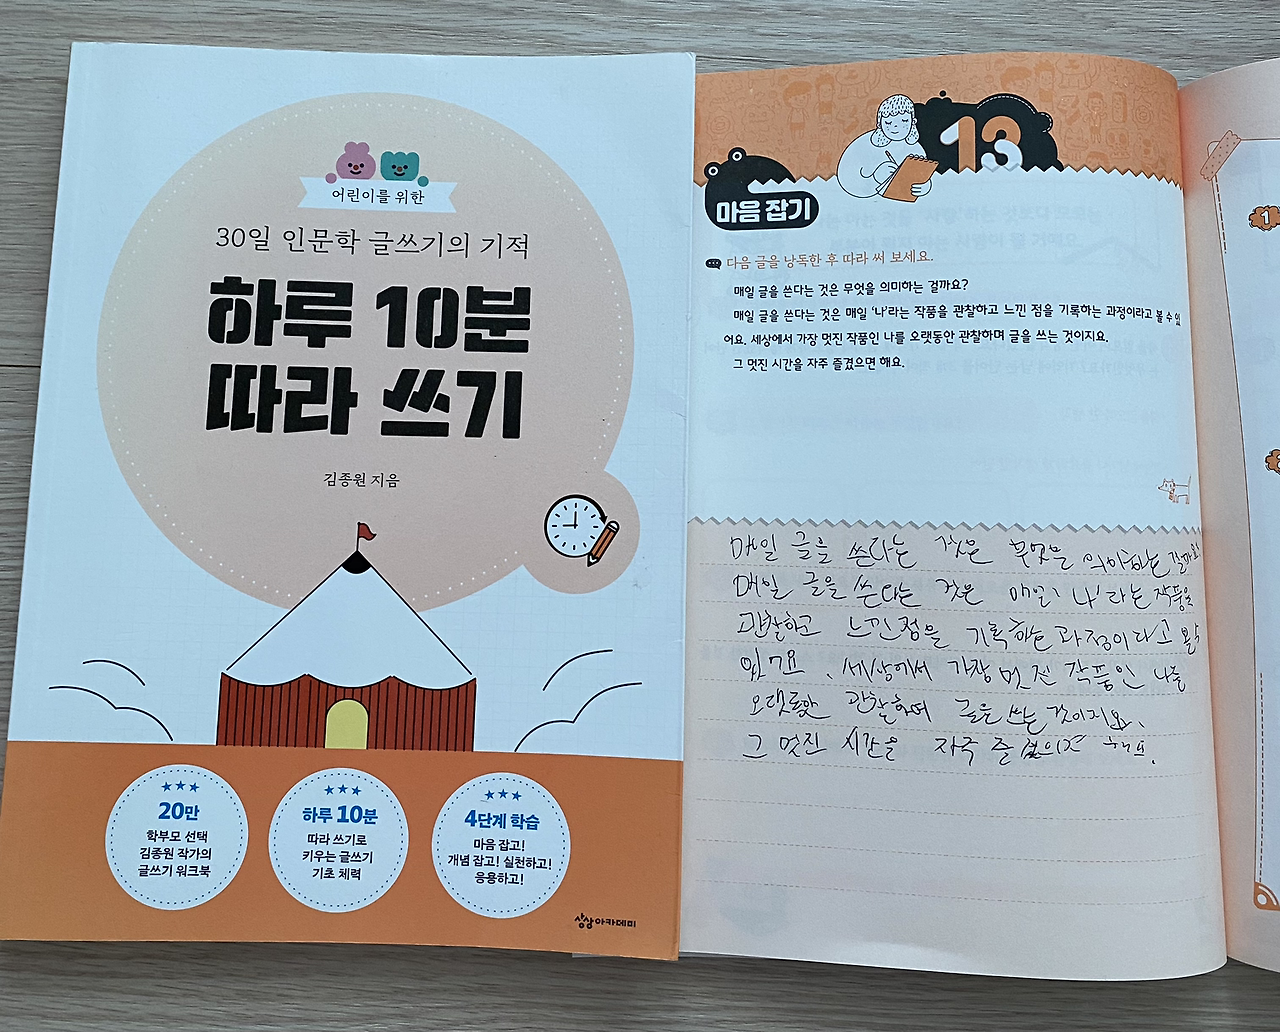 어린이를 위한
30일 인문학 글쓰기의 기적
하루 10분
따라 쓰기
김종원 지음
20만
학부모 선택
김종원 작가의
글쓰기 워크북
하루 10분
따라 쓰기로
키우는 글쓰기
기초 체력
4단계 학습
마음 잡고!
개념 잡고! 실천하고!
응용하고!
상상아카데미
13
마음 잡기
다음 글을 낭독한 후 따라 써 보세요.
매일 글을 쓴다는 것은 무엇을 의미하는 걸까요?
매일 글을 쓴다는 것은 매일 '나'라는 작품을 관찰하고 느낀 점을 기록하는 과정이라고 볼 수 있
어요. 세상에서 가장 멋진 작품인 나를 오랫동안 관찰하며 글을 쓰는 것이지요.
그 멋진 시간을 자주 즐겼으면 해요.
매일 글을 쓴다는 것은 무엇을 의미하는 걸까요?
매일 글을 쓴다는 것은 매일 '나'라는 작품을
관찰하고 느낀점을 기록하는 과정이라고 볼수
있어요. 세상에서 가장 멋진 작품인 나를
오랫동안 관찰하며 글을 쓰는 것이지요.
그 멋진 시간을 자주 즐겼으면 해요.
1